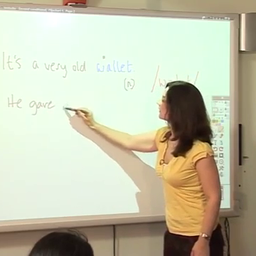 It's a very old wallet.
(n)
He gave